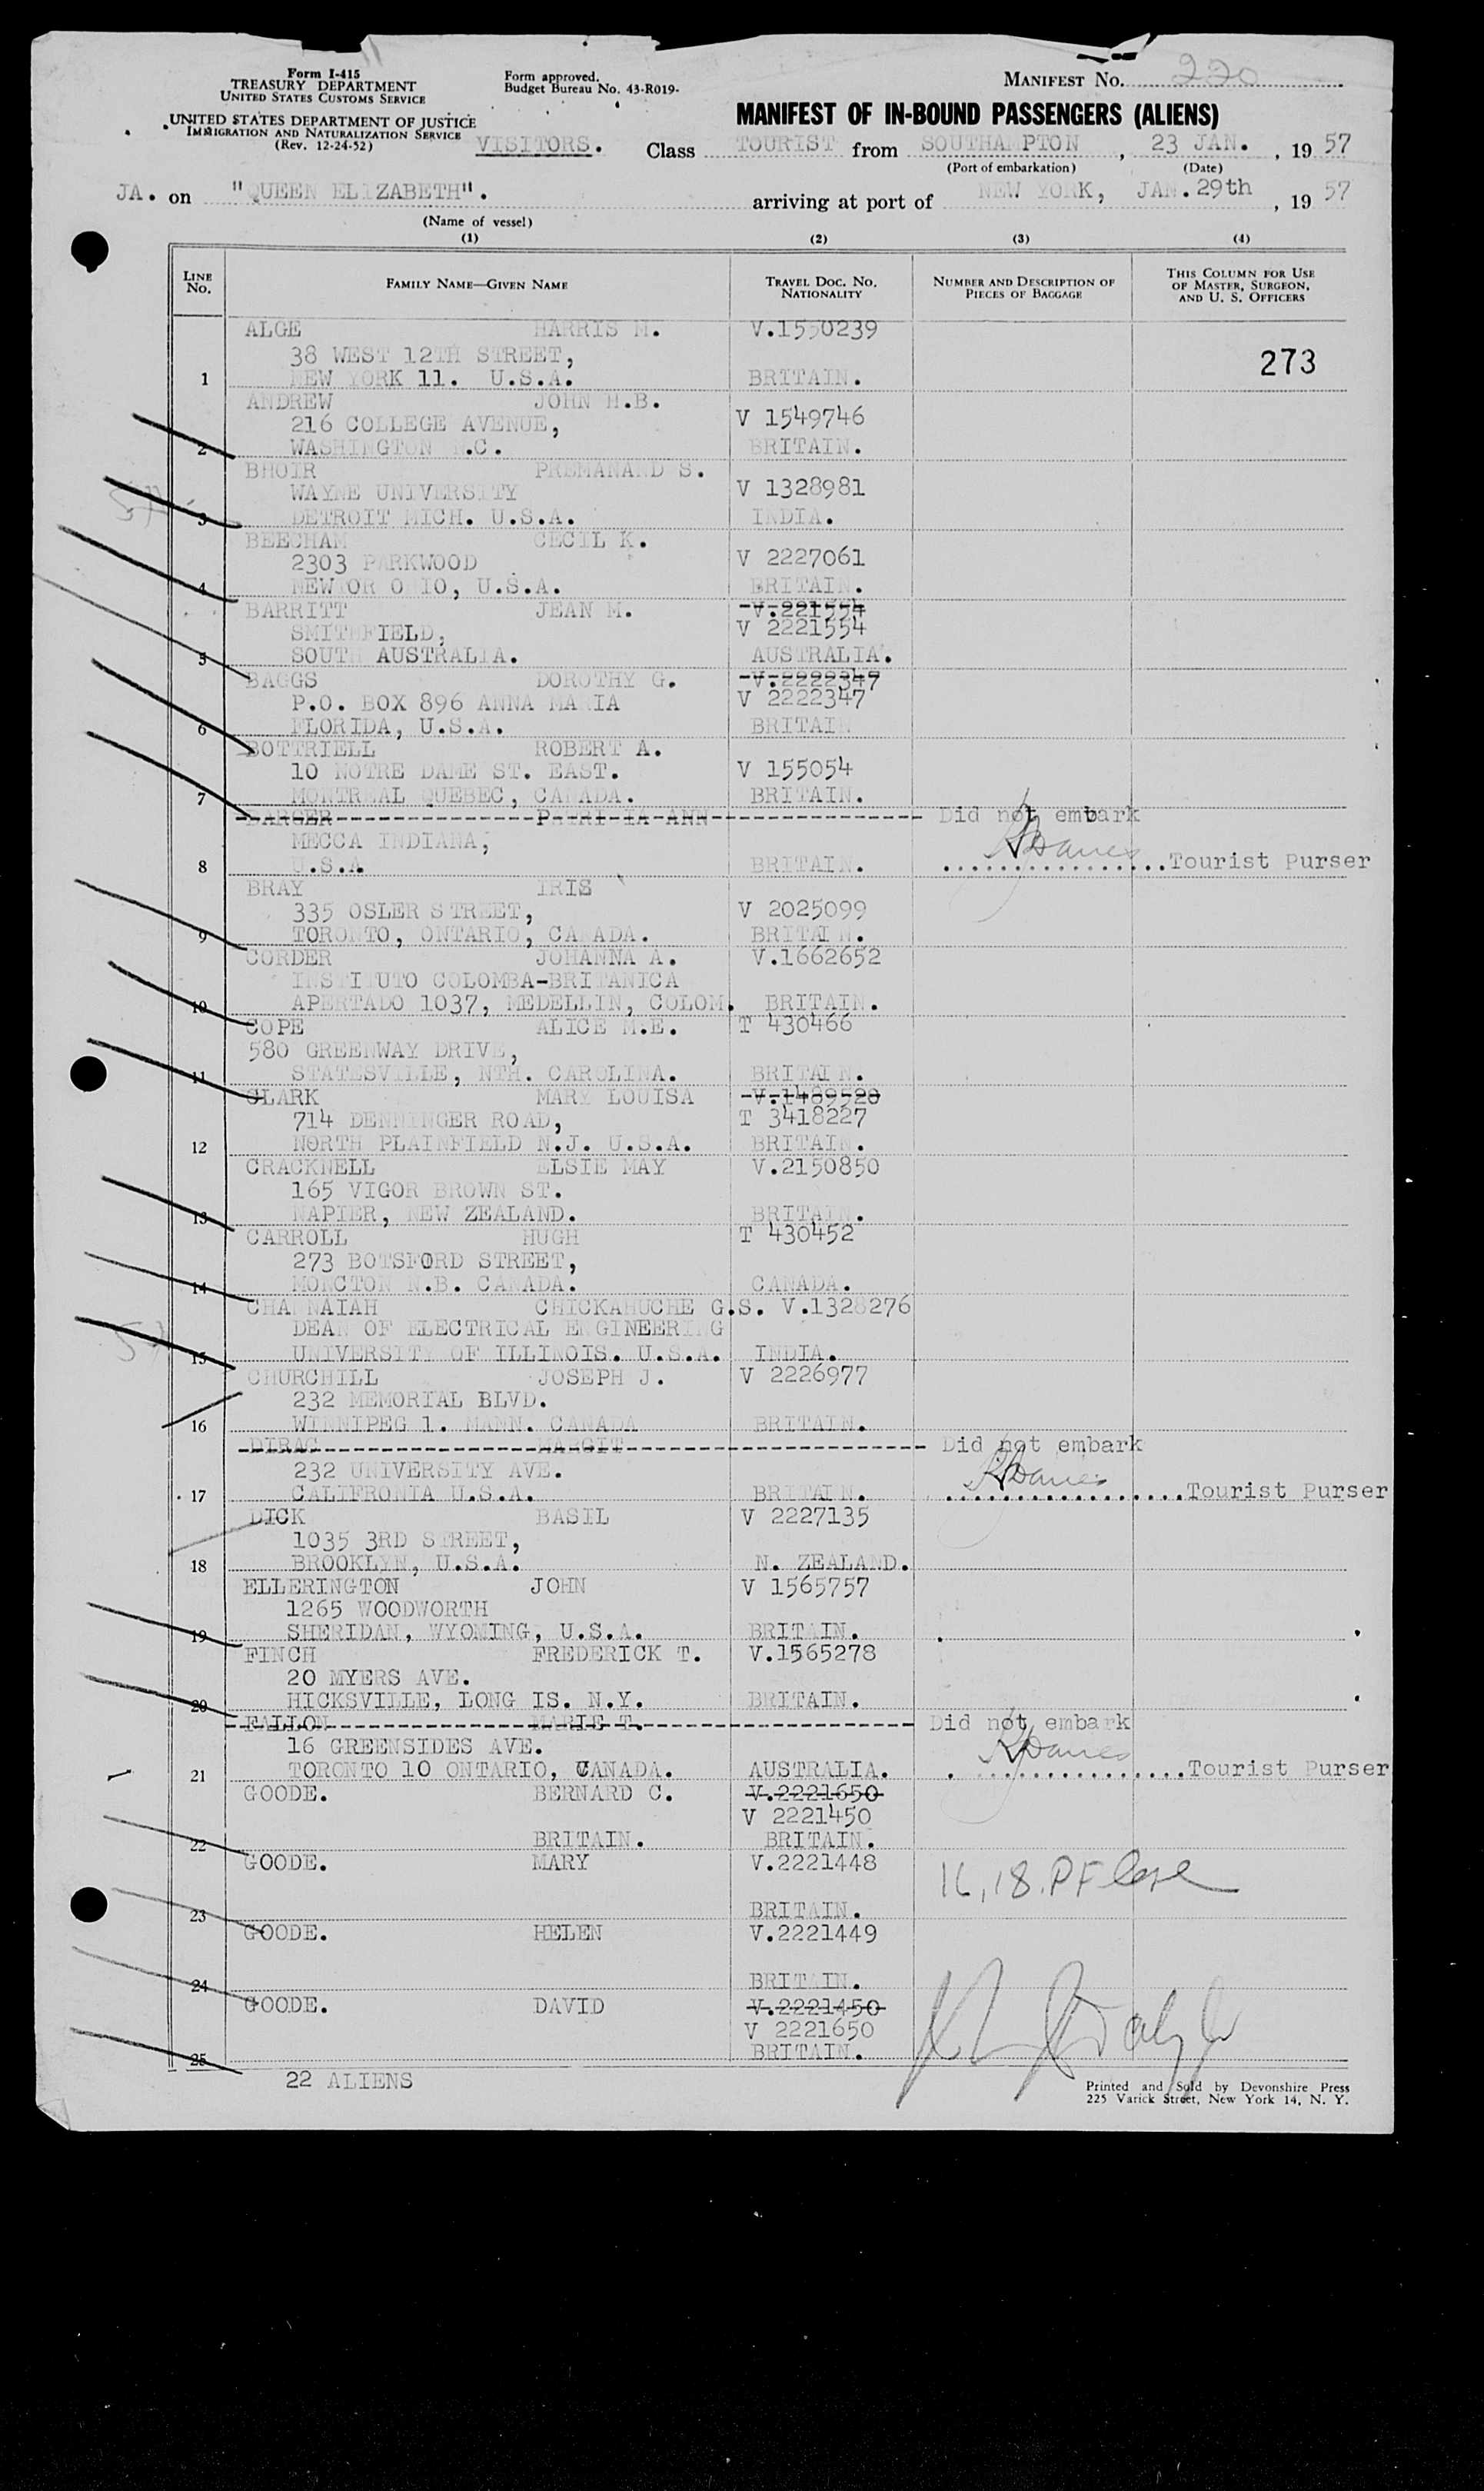 Form I-415
TREASURY DEPARTMENT
UNITED STATES CUSTOMS SERVICE
UNITED STATES DEPARTMENT OF JUSTICE
IMMIGRATION AND NATURALIZATION SERVICE
(Rev. 12-24-52)
Form approved.
Budget Bureau No. 43-R019-
MANIFEST No. 220
MANIFEST OF IN-BOUND PASSENGERS (ALIENS)
VISITORS. Class TOURIST from SOUTHAMPTON, 23 JAN., 19 57
(Port of embarkation) (Date)
JA. on "QUEEN ELIZABETH". arriving at port of NEW YORK, JAN.29th, 19 57
(Name of vessel)
(1) (2) (3) (4)
LINE No. FAMILY NAME—GIVEN NAME TRAVEL DOC. No. NATIONALITY NUMBER AND DESCRIPTION OF PIECES OF BAGGAGE THIS COLUMN FOR USE OF MASTER, SURGEON, AND U. S. OFFICERS
ALGE HARRIS M. V.1550239
38 WEST 12TH STREET, 273
1 NEW YORK 11. U.S.A. BRITAIN.
ANDREW JOHN H.B.
216 COLLEGE AVENUE, V 1549746
2 WASHINGTON .C. BRITAIN.
BHOIR PREMANAND S.
WAYNE UNIVERSITY V 1328981
3 DETROIT MICH. U.S.A. INDIA.
BEECHAM CECIL K.
2303 PARKWOOD V 2227061
4 NEW OR O IO, U.S.A. BRITAIN.
BARRITT JEAN M. V.221554
SMITHFIELD, V 2221554
5 SOUTH AUSTRALIA. AUSTRALIA.
BAGGS DOROTHY G. V.2222347
P.O. BOX 896 ANNA MARIA V 2222347
6 FLORIDA, U.S.A. BRITAIN
BOTTRIELL ROBERT A.
10 NOTRE DAME ST. EAST. V 155054
7 MONTREAL QUEBEC, CANADA. BRITAIN.
BARGER PATRI IA ANN Did not embark
MECCA INDIANA,
8 U.S.A BRITAIN. Tourist Purser
BRAY IRIS
335 OSLER STREET, V 2025099
9 TORONTO, ONTARIO, CANADA. BRITAIN.
CORDER JOHANNA A. V.1662652
INSTITUTO COLOMBA-BRITANICA
10 APERTADO 1037, MEDELLIN, COLOM. BRITAIN.
COPE ALICE M.E. T 430466
580 GREENWAY DRIVE,
11 STATESVILLE, NTH. CAROLINA. BRITAIN.
CLARK MARY LOUISA V.1489528
714 DENNINGER ROAD, T 3418227
12 NORTH PLAINFIELD N.J. U.S.A. BRITAIN.
CRACKNELL ELSIE MAY V.2150850
165 VIGOR BROWN ST.
13 NAPIER, NEW ZEALAND. BRITAIN.
CARROLL HUGH T 430452
273 BOTSFORD STREET,
14 MONCTON N.B. CANADA. CANADA.
CHANNAIAH CHICKAHUCHE G.S. V.1328276
DEAN OF ELECTRICAL ENGINEERING
15 UNIVERSITY OF ILLINOIS. U.S.A. INDIA.
CHURCHILL JOSEPH J. V 2226977
232 MEMORIAL BLVD.
16 WINNIPEG 1. MANN. CANADA BRITAIN.
DIRAC MARGIT Did not embark
232 UNIVERSITY AVE.
17 CALIFRONIA U.S.A. BRITAIN. Tourist Purser
DICK BASIL V 2227135
1035 3RD STREET,
18 BROOKLYN, U.S.A. N. ZEALAND.
ELLERINGTON JOHN V 1565757
1265 WOODWORTH
19 SHERIDAN, WYOMING, U.S.A. BRITAIN.
FINCH FREDERICK T. V.1565278
20 MYERS AVE.
20 HICKSVILLE, LONG IS. N.Y. BRITAIN.
FALLON MARIE T. Did not embark
16 GREENSIDES AVE.
21 TORONTO 10 ONTARIO, CANADA. AUSTRALIA. Tourist Purser
GOODE. BERNARD C. V.2221650
V 2221450
22 BRITAIN. BRITAIN.
GOODE. MARY V.2221448
16, 18. PF
23 BRITAIN.
GOODE. HELEN V.2221449
24 BRITAIN.
GOODE. DAVID V.2221450
V 2221650
25 BRITAIN.
22 ALIENS
Printed and Sold by Devonshire Press
225 Varick Street, New York 14, N. Y.